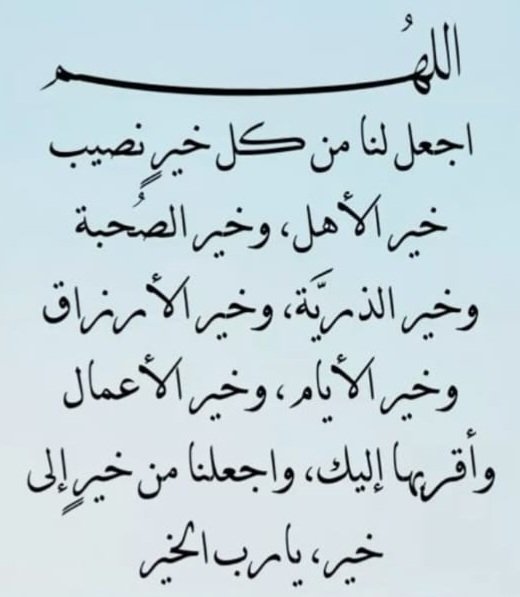 اللهُم
اجعل لنا من كل خيرٍ نصيب
خير الأهل، وخير الصُحبة
وخير الذريَّة، وخير الأرزاق
وخير الأيام، وخير الأعمال
وأقربها إليك، واجعلنا من خيرٍ إلى
خير، يا رب الخير